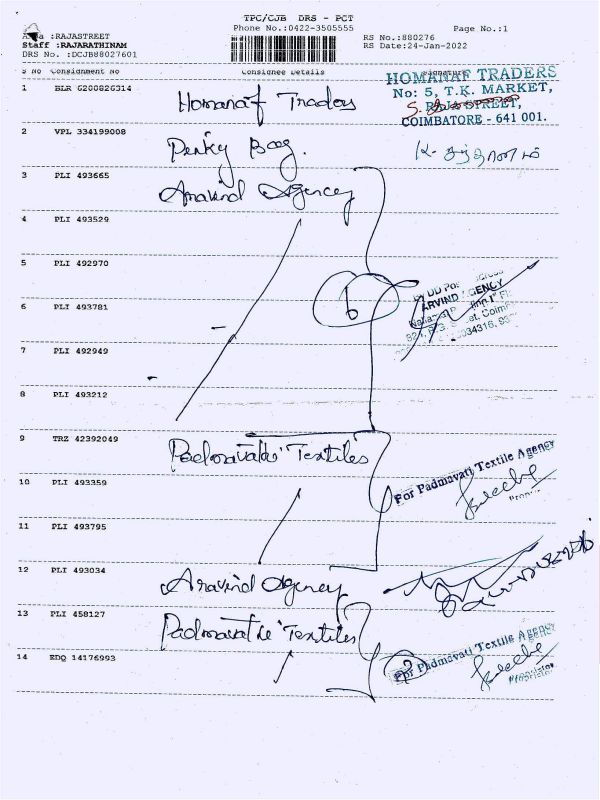 TPC/CJB DRS - PCT
Phone No.:0422-3505555
Page No.:1
:RAJASTREET
Staff :RAJARATHINAM
DRS No. :DCJB88027601
RS No.:880276
RS Date:24-Jan-2022
S No Consignment No Consignee Details Signature
1 BLR 6200826314 Homanaf Traders
HOMANAF TRADERS
No: 5, T.K. MARKET,
RAJA STREET,
COIMBATORE - 641 001.
2 VPL 334199008 Perky Bag.
3 PLI 493665 Aravind Agency
4 PLI 493529
5 PLI 492970
6 PLI 493781 6
ARVIND AGENCY
7 PLI 492949
8 PLI 493212
9 TRZ 42392049 Padmavathi Textiles
10 PLI 493359
For Padmavati Textile Agency
11 PLI 493795
12 PLI 493034 Aravind Agency
13 PLI 458127 Padmavathi Textiles
14 EDQ 14176993 2
For Padmavati Textile Agency
Proprietor